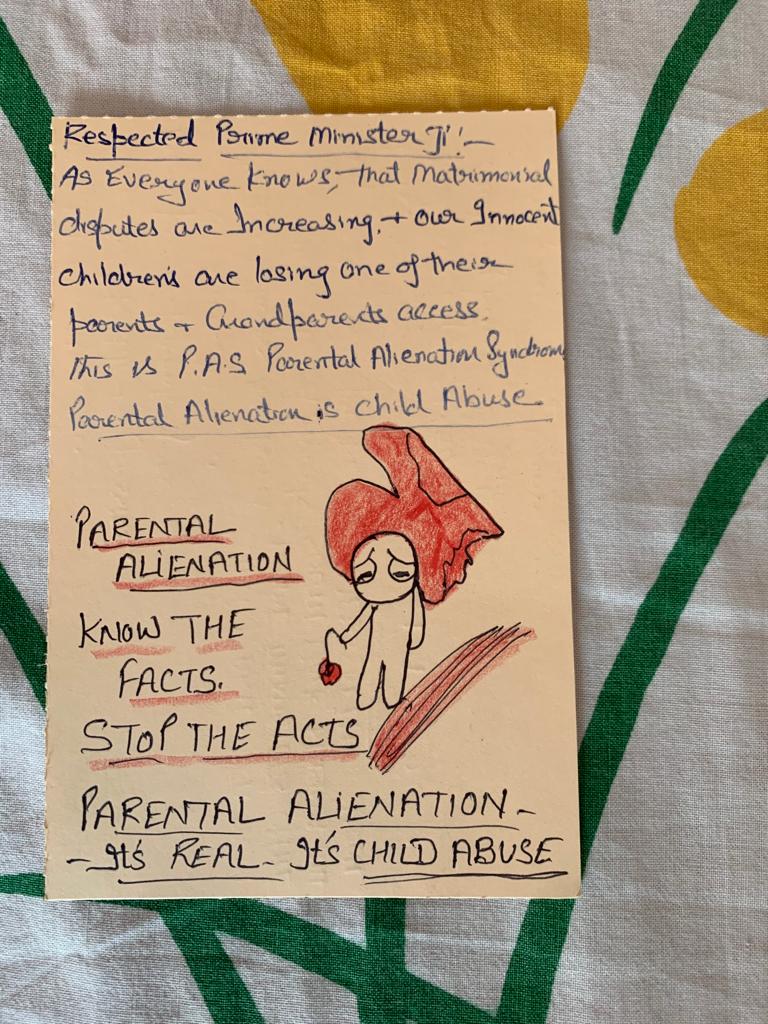 Respected Prime Minister Ji!-
As Everyone Knows, that Matrimonial
disputes are Increasing, + our Innocent
children's are losing one of their
parents + Grandparents access.
This is P.A.S Parental Alienation Syndrom
Parental Alienation is Child Abuse
PARENTAL
ALIENATION
KNOW THE
FACTS.
STOP THE ACTS
PARENTAL ALIENATION-
-It's REAL- It's CHILD ABUSE